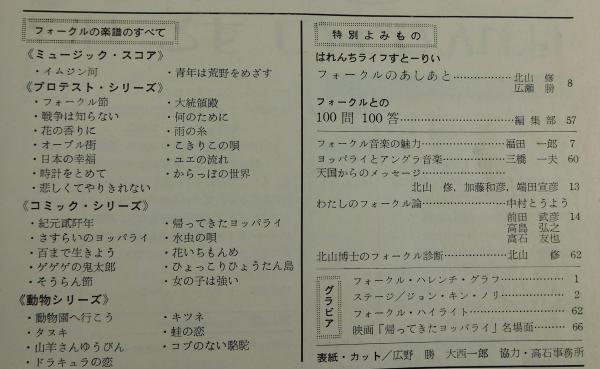 フォークルの楽譜のすべて
《ミュージック・スコア》
・イムジン河
・青年は荒野をめざす
《プロテスト・シリーズ》
・フォークル節
・大統領殿
・戦争は知らない
・何のために
・花の香りに
・雨の糸
・オーブル街
・こきりこの唄
・日本の幸福
・ユエの流れ
・時計をとめて
・からっぽの世界
・悲しくてやりきれない
《コミック・シリーズ》
・紀元貳阡年
・帰ってきたヨッパライ
・さすらいのヨッパライ
・水虫の唄
・百まで生きよう
・花いちもんめ
・ゲゲゲの鬼太郎
・ひょっこりひょうたん島
・そうらん節
・女の子は強い
《動物シリーズ》
・動物園へ行こう
・キツネ
・タヌキ
・蛙の恋
・山羊さんゆうびん
・コブのない駱駝
・ドラキュラの恋
特別よみもの
はれんちライフすとーりい
フォークルのあしあと……………北山 修 8
広瀬 勝
フォークルとの
100問 100答……………編集部 57
フォークル音楽の魅力……………福田 一郎 7
ヨッパライとアングラ音楽……………三橋 一夫 60
天国からのメッセージ……………
北山 修，加藤和彦，端田宣彦 13
わたしのフォークル論……………中村とうよう
前田 武彦 14
高島 弘之
高石 友也
北山博士のフォークル診断……………北山 修 62
グラビア
フォークル・ハレンチ・グラフ……………1
ステージ／ジョン・キン・ノリ……………2
フォークル・ハイライト……………62
映画「帰ってきたヨッパライ」名場面………66
表紙・カット／広野 勝 大西一郎 協力・高石事務所